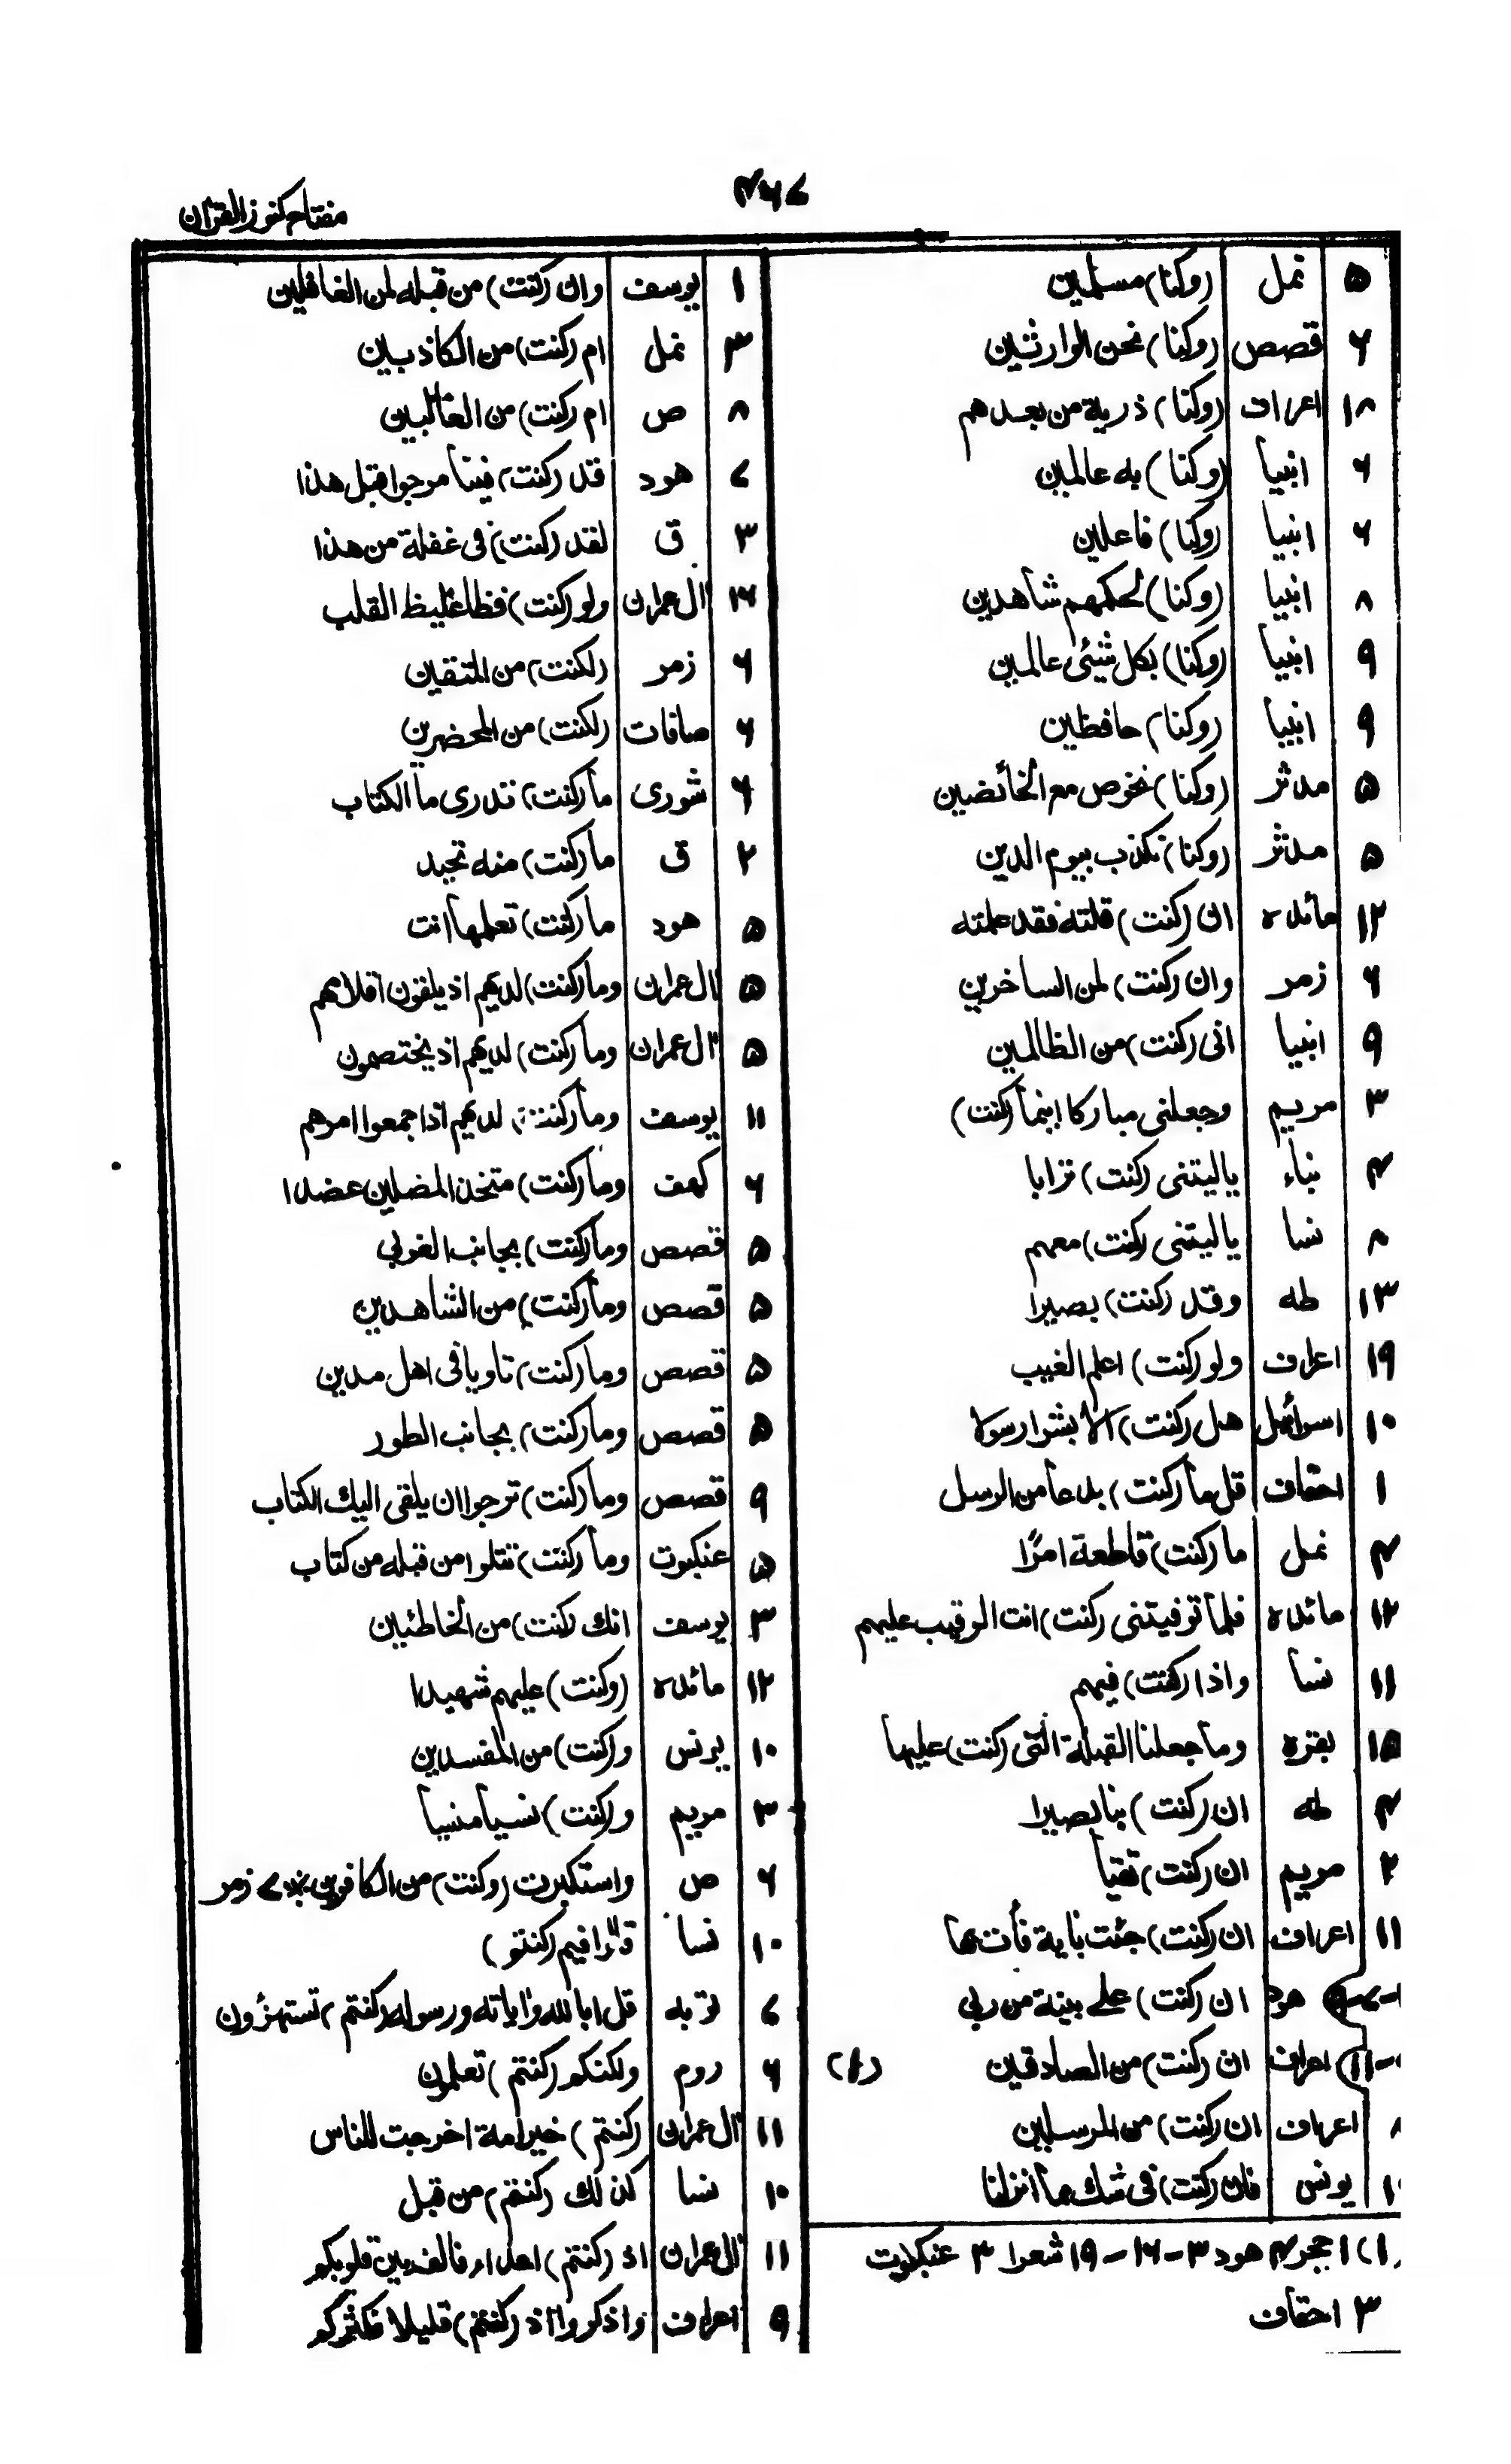 ۴۶۷
مفتاح کنوز القرآن
۵ نمل (وکنا) مسلمین
۶ قصص (وکنا) نحن الوارثین
۱۸ اعراف (وکنا) ذریة من بعدهم
۶ انبیا (وکنا) به عالمین
۶ انبیا (وکنا) فاعلین
۸ انبیا (وکنا) لحکمهم شاهدین
۹ انبیا (وکنا) بکل شیئی عالمین
۹ انبیا (وکنا) حافظین
۵ مدثر (وکنا) نخوص مع الخائضین
۵ مدثر (وکنا) نکذب بیوم الدین
۱۲ مائده ان (کنت) قلته فقد علمته
۶ زمر وان (کنت) لمن الساخرین
۹ انبیا انی (کنت) من الظالمین
۳ مریم وجعلنی مبارکا اینما (کنت)
۴ نباء یالیتنی (کنت) ترابا
۸ نسا یالیتنی (کنت) معهم
۱۳ طه وقد (کنت) بصیرا
۱۹ اعراف ولو (کنت) اعلم الغیب
۱۰ اسرائیل هل (کنت) الا بشرا رسولا
۱ احقاف قل ما (کنت) بدعا من الرسل
۴ نمل ما (کنت) قاطعة امرًا
۱۲ مائده فلما توفیتنی (کنت) انت الرقیب علیهم
۱۱ نسا واذا (کنت) فیهم
۱۵ بقره وما جعلنا القبلة التی (کنت) علیها
۴ طه ان (کنت) بنا بصیرا
۲ مریم ان (کنت) تقیا
۱۱ اعراف ان (کنت) جئت بایة فأت بها
هود ان (کنت) علی بینة من ربی
۱۱ اعراف ان (کنت) من الصادقین (۱)
اعراف ان (کنت) من المرسلین
۱۰ یونس فان (کنت) فی شک مما انزلنا
(۱) ۱ حجر ۴ هود ۳-۱۶-۱۹ شعرا ۳ عنکبوت
۳ احقاف
۱ یوسف وان (کنت) من قبله لمن الغافلین
۳ نمل ام (کنت) من الکاذبین
۸ ص ام (کنت) من العالین
۷ هود قد (کنت) فینا مرجوا قبل هذا
۳ ق لقد (کنت) فی غفلة من هذا
ال عمران ولو (کنت) فظا غلیظ القلب
۶ زمر (لکنت) من المتقین
۶ صافات (لکنت) من المحضرین
۶ شوری ما (کنت) تدری ما الکتاب
۲ ق ما (کنت) منه تحید
۵ هود ما (کنت) تعلمها انت
۵ ال عمران وما (کنت) لدیهم اذ یلقون اقلامهم
۵ ال عمران وما (کنت) لدیهم اذ یختصمون
۱۱ یوسف وما (کنت) لدیهم اذ اجمعوا امرهم
۶ کهف وما (کنت) متخذ المضلین عضدا
۵ قصص وما (کنت) بجانب الغربی
۵ قصص وما (کنت) من الشاهدین
۵ قصص وما (کنت) ثاویا فی اهل مدین
۵ قصص وما (کنت) بجانب الطور
۹ قصص وما (کنت) ترجوا ان یلقی الیک الکتاب
۵ عنکبوت وما (کنت) تتلوا من قبله من کتاب
۳ یوسف انک (کنت) من الخاطئین
۱۲ مائده (وکنت) علیهم شهیدا
۱۰ یونس و(کنت) من المفسدین
۳ مریم و(کنت) نسیا منسیا
۶ ص واستکبرت (وکنت) من الکافرین * ۷ زمر
۱۰ نسا قالوا فیم (کنتم)
۷ توبه قل ابالله وایاته ورسوله (کنتم) تستهزؤن
۶ روم ولکنکم (کنتم) تعلمون
۱۱ ال عمران (کنتم) خیر امة اخرجت للناس
۱۰ نسا کذلک (کنتم) من قبل
۱۱ ال عمران اذ (کنتم) اعداء فالف بین قلوبکم
۹ اعراف واذکروا اذ (کنتم) قلیلا فکثرکم